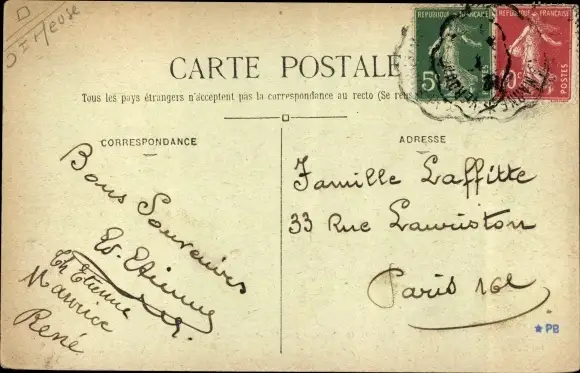 D
Meuse
REPUBLIQUE FRANÇAISE
5
POSTES
REPUBLIQUE FRANÇAISE
10c
POSTES
CARTE POSTALE
Tous les pays étrangers n'acceptent pas la correspondance au recto (Se
CORRESPONDANCE
ADRESSE
Bons Souvenirs
Ed. Etienne
Ch Etienne
Maurice
René
Famille Laffitte
33 Rue Lauriston
Paris 16e
PB